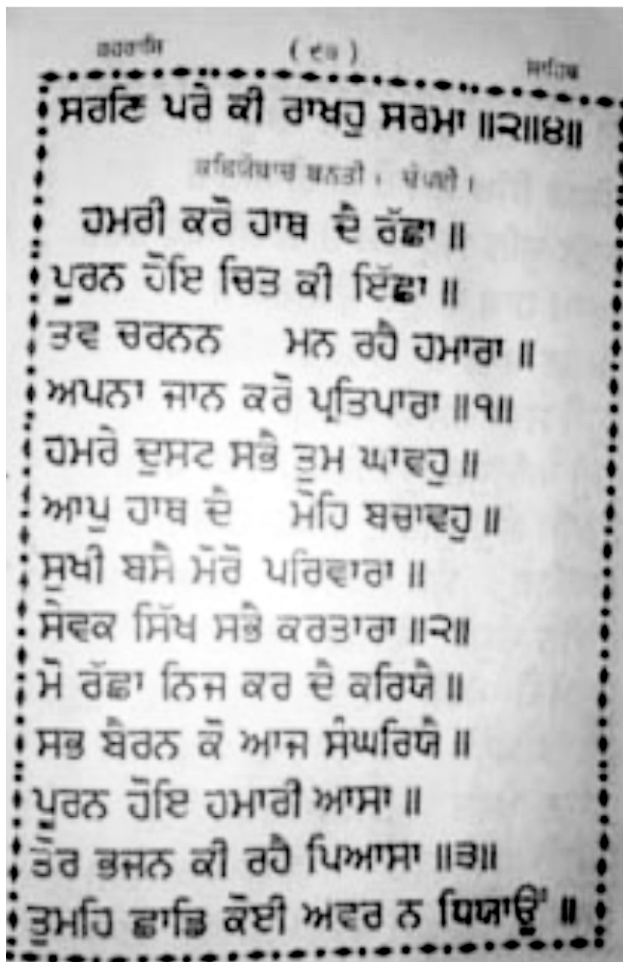 ਰਹਰਾਸਿ ( ੯੩ ) ਸਾਹਿਬ
ਸਰਣਿ ਪਰੇ ਕੀ ਰਾਖਹੁ ਸਰਮਾ ॥੨॥੪॥
ਕਬਿਯੋਬਾਚ ਬੇਨਤੀ । ਚੌਪਈ ।
ਹਮਰੀ ਕਰੋ ਹਾਥ ਦੈ ਰੱਛਾ ॥
ਪੂਰਨ ਹੋਇ ਚਿਤ ਕੀ ਇੱਛਾ ॥
ਤਵ ਚਰਨਨ ਮਨ ਰਹੈ ਹਮਾਰਾ ॥
ਅਪਨਾ ਜਾਨ ਕਰੋ ਪ੍ਰਤਿਪਾਰਾ ॥੧॥
ਹਮਰੇ ਦੁਸਟ ਸਭੈ ਤੁਮ ਘਾਵਹੁ ॥
ਆਪੁ ਹਾਥ ਦੈ ਮੋਹਿ ਬਚਾਵਹੁ ॥
ਸੁਖੀ ਬਸੈ ਮੋਰੋ ਪਰਿਵਾਰਾ ॥
ਸੇਵਕ ਸਿੱਖ ਸਭੈ ਕਰਤਾਰਾ ॥੨॥
ਮੋ ਰੱਛਾ ਨਿਜ ਕਰ ਦੈ ਕਰਿਯੈ ॥
ਸਭ ਬੈਰਨ ਕੋ ਆਜ ਸੰਘਰਿਯੈ ॥
ਪੂਰਨ ਹੋਇ ਹਮਾਰੀ ਆਸਾ ॥
ਤੋਰ ਭਜਨ ਕੀ ਰਹੈ ਪਿਆਸਾ ॥੩॥
ਤੁਮਹਿ ਛਾਡਿ ਕੋਈ ਅਵਰ ਨ ਧਿਯਾਊਂ ॥